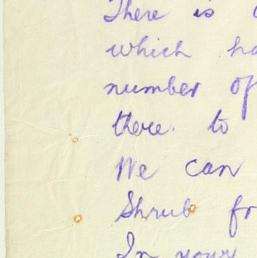 There is a
which ha
number of
there. to
We can
Shrub fr
In yours